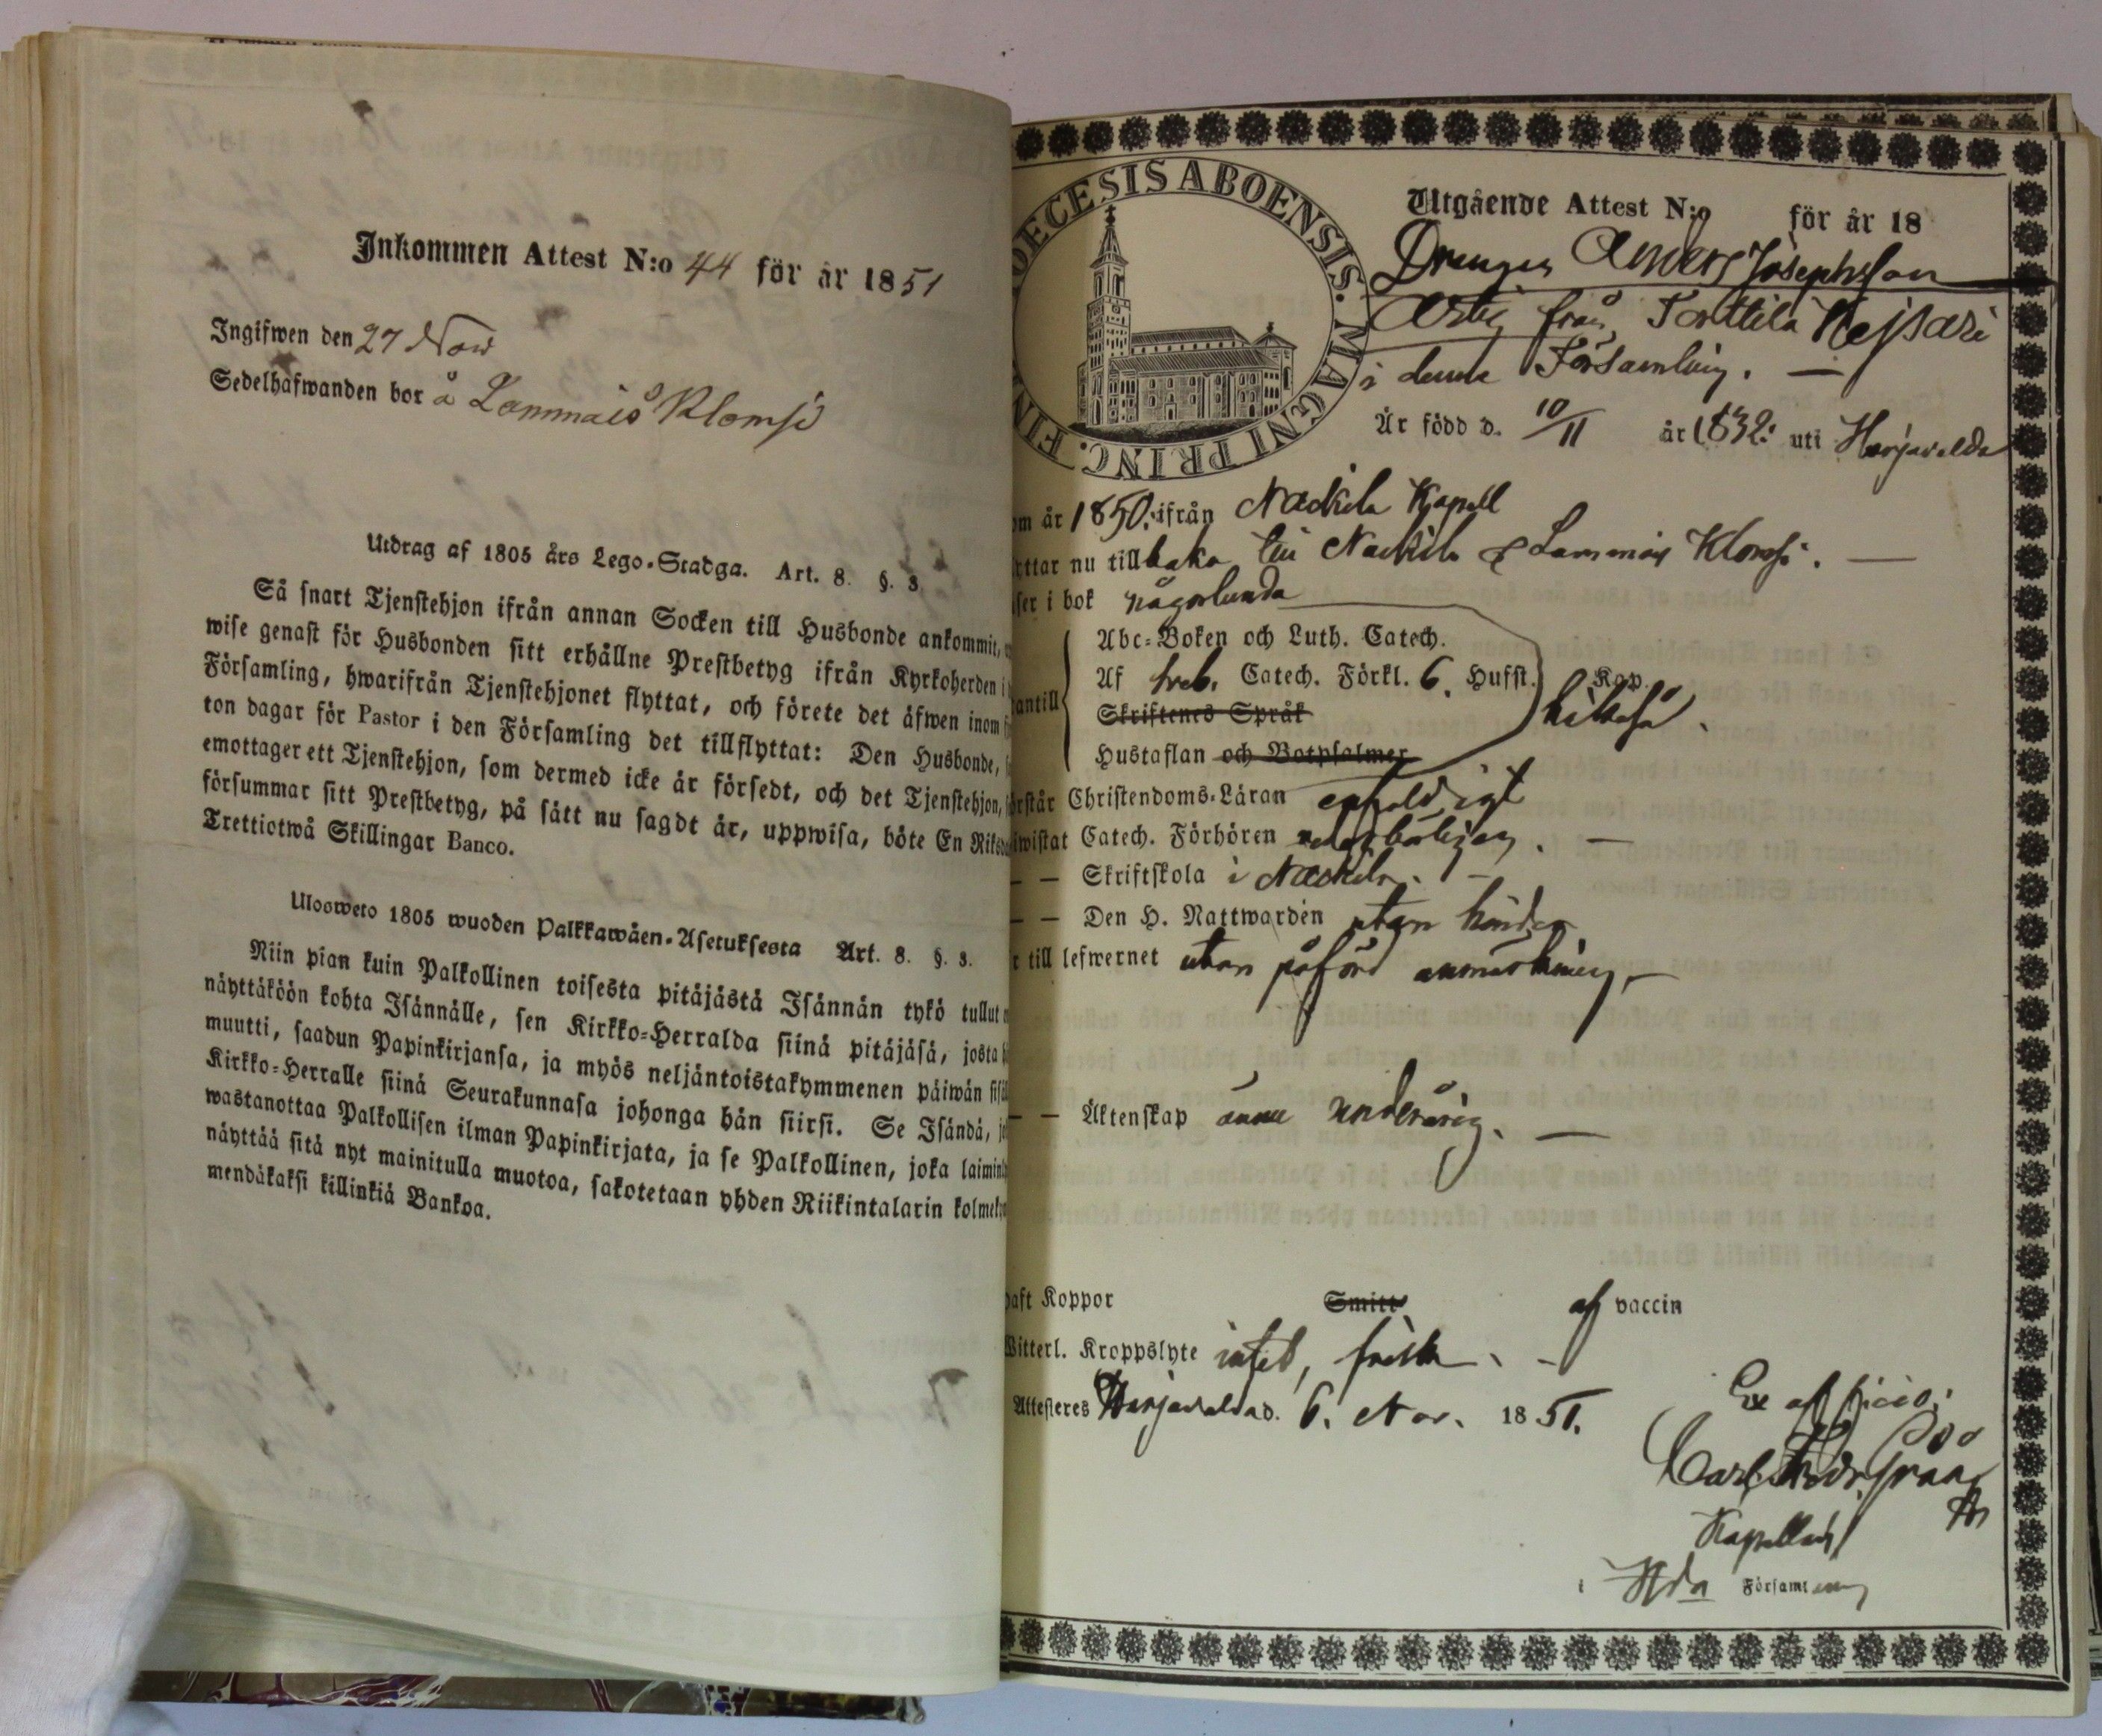 Inkommen Attest N:o 44 för år 1851
Ingifwen den 27 Nov
Sedelhafwanden bor å Lammais Klomsi
Utdrag af 1805 års Lego-Stadga. Art. 8. §. 3
Så snart Tjenstehjon ifrån annan Socken till Husbonde ankommit,
wise genast för Husbonden sitt erhållne Prestbetyg ifrån Kyrkoherden i
Församling, hwarifrån Tjenstehjonet flyttat, och förete det äfwen inom
ton dagar för Pastor i den Församling det tillflyttat: Den Husbonde,
emottager ett Tjenstehjon, som dermed icke är försedt, och det Tjenstehjon,
försummar sitt Prestbetyg, på sätt nu sagdt är, uppwisa, böte En Riks
Trettiotwå Skillingar Banco.
Ulosweto 1805 wuoden Palkkawäen-Asetuksesta Art. 8. §. 3.
Niin pian kuin Palkollinen toisesta pitäjästä Isännän tykö tullut
näyttäköön kohta Isännälle, sen Kirkko-Herralda siinä pitäjäsä, josta
muutti, saadun Papinkirjansa, ja myös neljäntoistakymmenen päiwän
Kirkko-Herralle siinä Seurakunnasa johonga hän siirsi. Se Isändä,
wastanottaa Palkollisen ilman Papinkirjata, ja se Palkollinen, joka
näyttää sitä nyt mainitulla muotoa, sakotetaan yhden Riikintalarin
mendäkaksi killinkiä Bankoa.
DECESIS ABOENSIS. MAGNI PRINC. FIN
Utgående Attest N:o för år 18
Drengen Anders Josephsson
från Torttila Kejsari
i denna Församling. —
Är född d. 10/11 år 1832. uti Harjavalda
om år 1850. ifrån Nackila Kapell
ttar nu tillbaka till Nackila & Lammais Klomsi. —
ser i bok någorlunda
Abc-Boken och Luth. Catech.
Af Catech. Förkl. 6. Hufst. Kap.
antill
Skriftenes Språk
Hustaflan och Botpsalmer
rstår Christendoms-Läran enfaldigt
wistat Catech. Förhören —
— — Skriftskola i Nackila. —
— — Den H. Nattwarden utan hinder
r till lefwernet utan påförd anmärkning. —
— — Äktenskap ännu underårig. —
haft Koppor Smitt af vaccin
Witterl. Kroppslyte intet, frisk. —
Attesteres Harjavalda d. 6. Nov. 1851.
Ex officio:
Carl
Kapellan
i Hda Församling